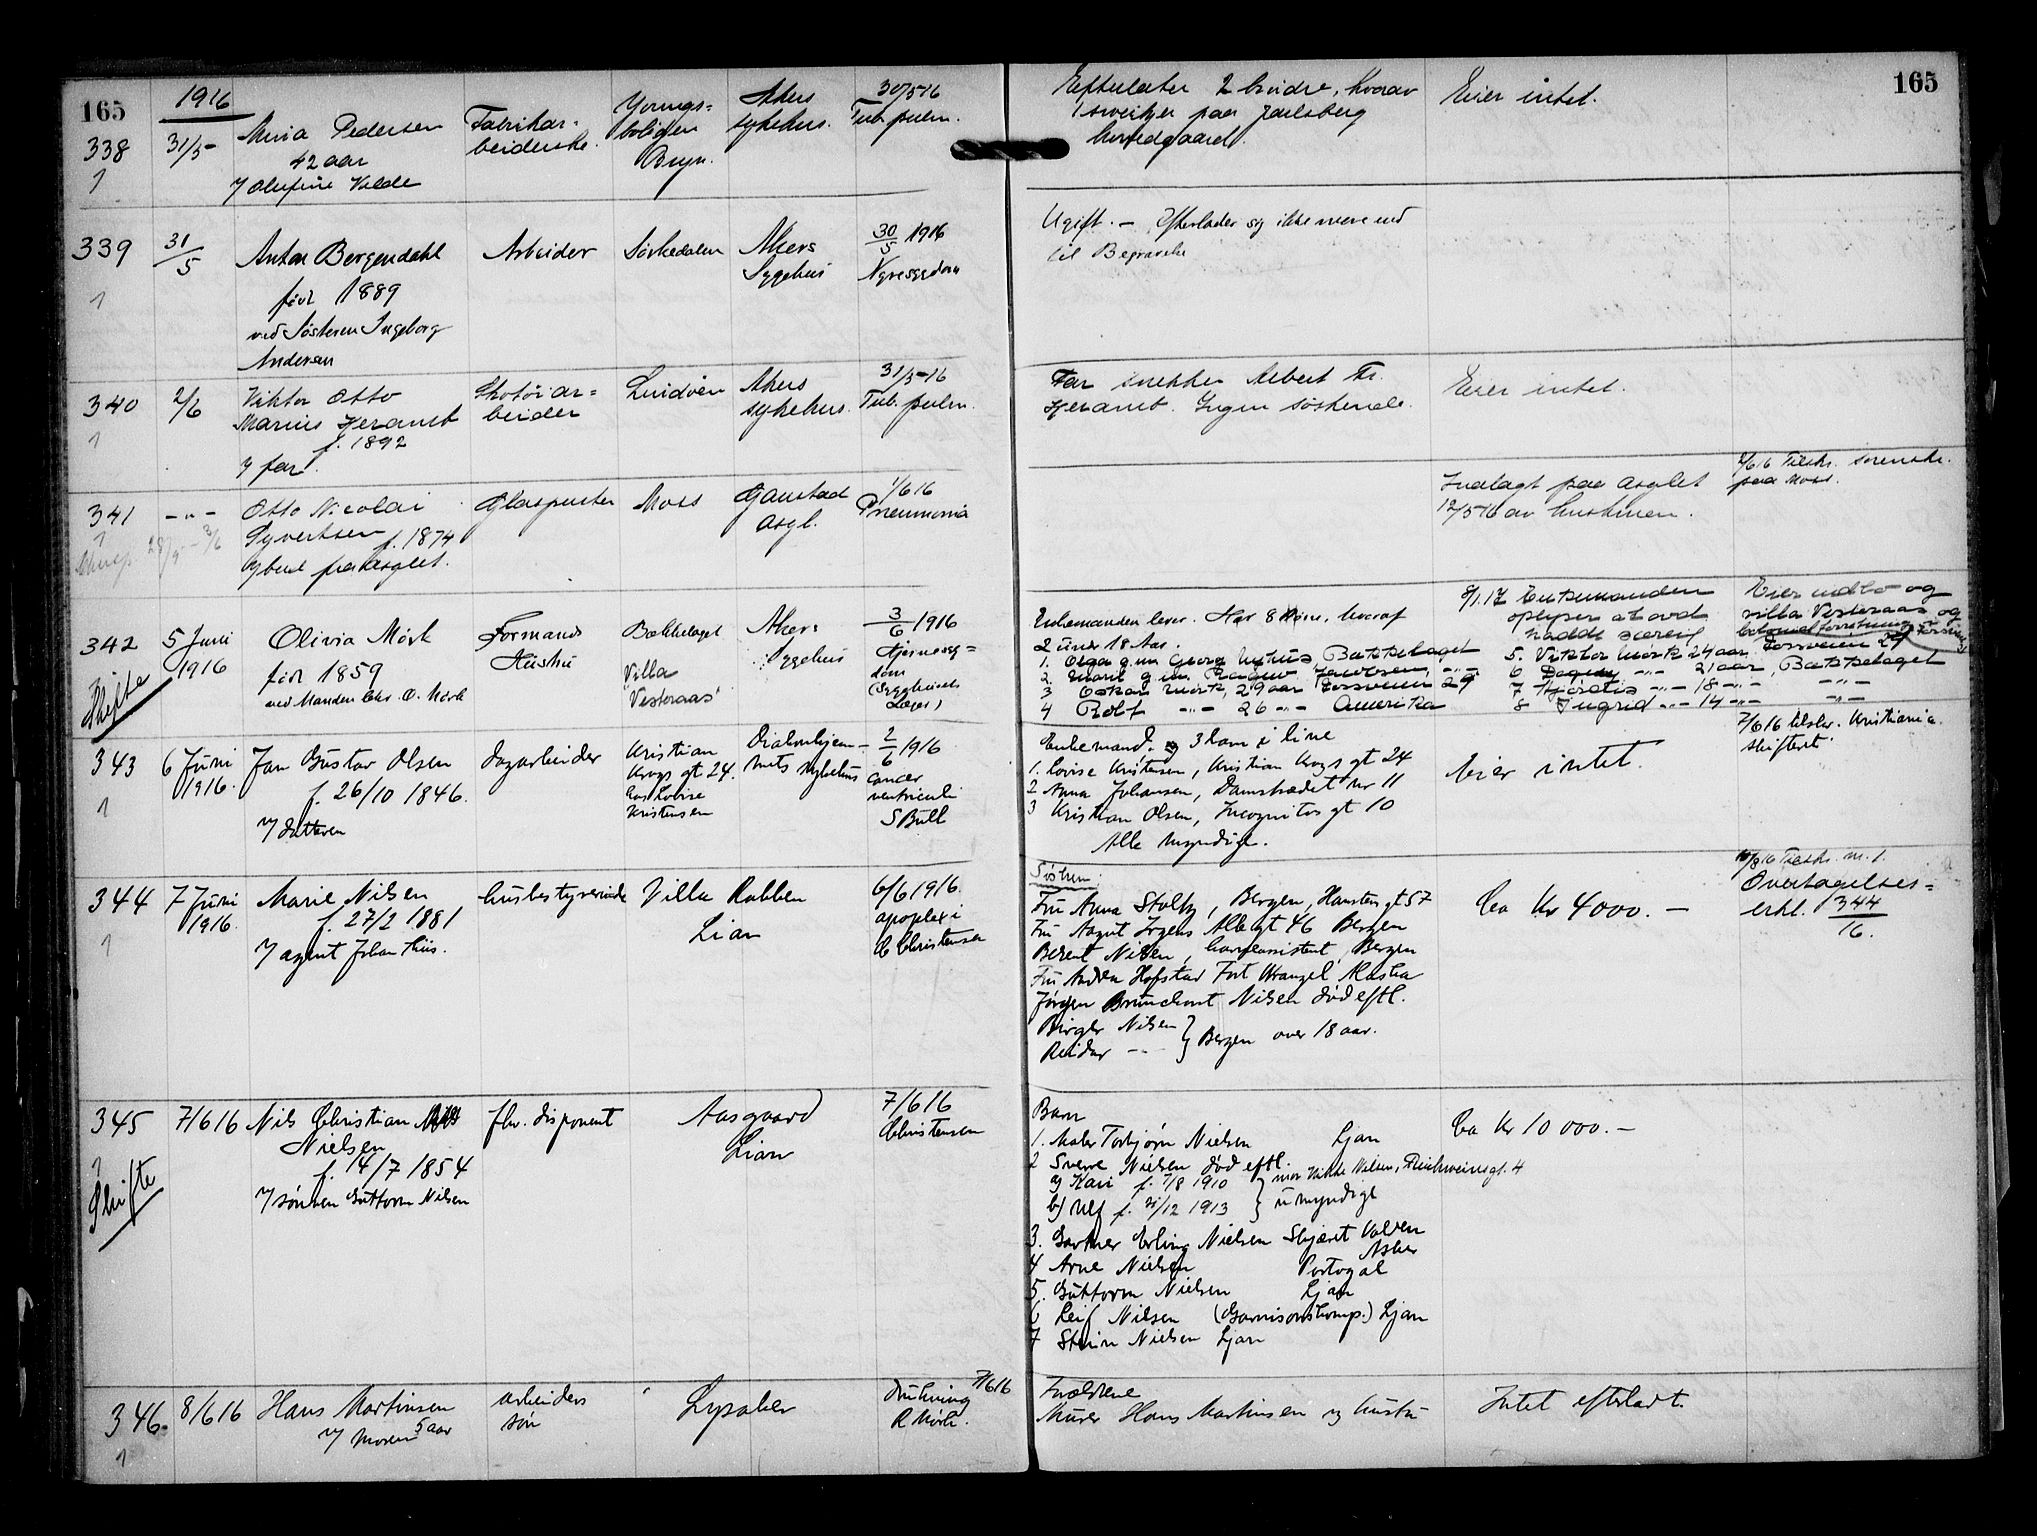 165
1916
338
1
31/5-
Pedersen
42 aar
v/ Olufine Volde
Fabrikar-
beiderske.
boligen
Bryn.
Akers
sykehus.
30/5-16
Tub. pulm.
Efterlater 2 brødre, hvorav
1 sveitser paa Jarlsberg
hovedgaard.
Eier intet.
165
339
1
31/5
Anton Bergendahl
født 1889
ved Søsteren Ingeborg
Andersen
Arbeider
Sørkedalen
Akers
Sygehus
30/5 1916
Nyresygdom
Ugift. - Efterlader sig ikke mere end
til Begravelse
340
1
2/6
Viktor Otto
Marius
f. 1892
v/ far.
Skotøiar-
beider
Lindøen
Akers
sykehus.
31/5-16
Tub. pulm.
Far snekker Albert Fr.
Ingen søskende.
Eier intet.
341
1
-"-
Otto Nicolai
Syvertsen f. 1874
v/ bud fra asylet.
Glaspuster
Moss
Gaustad
Asyl.
1/6 16
Pneumonia
Indlagt paa asylet
12/5 16 av hustruen.
2/6 16 Tilskr. sorenskr.
paa Moss.
342
Skifte
5 Juni
1916
Olivia Mörk
født 1859
ved Manden Chr. O. Mörk
Formands
Hustru
Bækkelaget
Villa
Vesteraas
Akers
Sygehus
3/6 1916
Hjernesyg-
dom
(Sygehusets
Læge)
Enkemanden lever. Har 8 Børn, hvoraf
2 under 18 Aar.
1. Olga g.m. Georg Bækkelaget
2. Marit g.m. Jacobsen, -"-
3 Oskar Mörk, 29 aar 29
4 Rolf -"- 26 -"- Amerika
8/1.17 Enkemanden
oplyser at avd
hadde særeie
5. Viktor Mörk 24 aar, 29
6 Dagny -"- 21 aar, Bækkelaget
7 Hjørdis -"- 18 -"- -"-
8 Ingrid -"- 14 -"- -"-
Eier indbo og
villa Vesteraas og
343
1
6 Juni
1916.
Jan Gustav Olsen
f. 26/10 1846.
v/ datteren
dagarbeider
Kristian
Krogs gt 24.
hos Lovise
Kristensen
Diakonhjem-
mets sykehus
2/6 1916
Cancer
ventriculi
S Bull
Enkemand. og 3 barn i live
1. Lovise Kristensen, Kristian Krogs gt 24
2 Anna Johansen, Damstrædet nr 11
3 Kristian Olsen, Incognitos gt 10
Alle myndige.
Eier intet.
7/6 16 tilskr. Kristiania
skifteret.
344
1
7 Juni
1916.
Marie Nilsen
f. 27/2 1881
v/ agent Johan Thiis.
husbestyrerinde
Villa Rabben
Lian
6/6 1916.
apoplexi
C Christensen
Søsken:
Fru Anna Stoltz, Bergen, Hansteens gt 57
Fru Aagot Irgens Allegt 46 Bergen
Berent Nilsen, havneassistent, Bergen
Fru Andrea Hofstad Fort Wrangel Alaska
Jørgen Brunchorst Nilsen død eftl.
Birger Nilsen } Bergen over 18 aar.
Reidar -"-
Ca Kr 4000. -
10/8 16 Tilskr. m. 1.
Overtagelses-
erkl. 344/16.
345
1
Skifte
7/6 16
Nils Christian
Nielsen
f. 14/7 1854
v/ sønnen Guttorm Nilsen
fhv. disponent
Aasgaard
Lian
7/6 16
Christensen
Barn
1. Maler Torbjørn Nielsen Ljan
2 Sverre Nielsen død eftl.
a) Kari f. 7/8 1910 } mor Vibke Nilsen, Reichweinsgt. 4
b) Ulf f. 21/12 1913 } umyndige
3. Gartner Erling Nielsen Skjæret Valden
Asker
4 Arne Nielsen Portogal
5. Guttorm Nielsen Ljan
6 Leif Nilsen (Garnisonskomp.) Ljan
7 Steinn Nielsen Ljan
Ca Kr 10 000. -
346.
1
8/6 16
Hans Martinsen
5 aar
v/ moren
arbeiders
søn
Lysaker
7/6 16
drukning
R Mørk.
Forældrene
Murer Hans Martinsen og hustru
Intet efterladt.